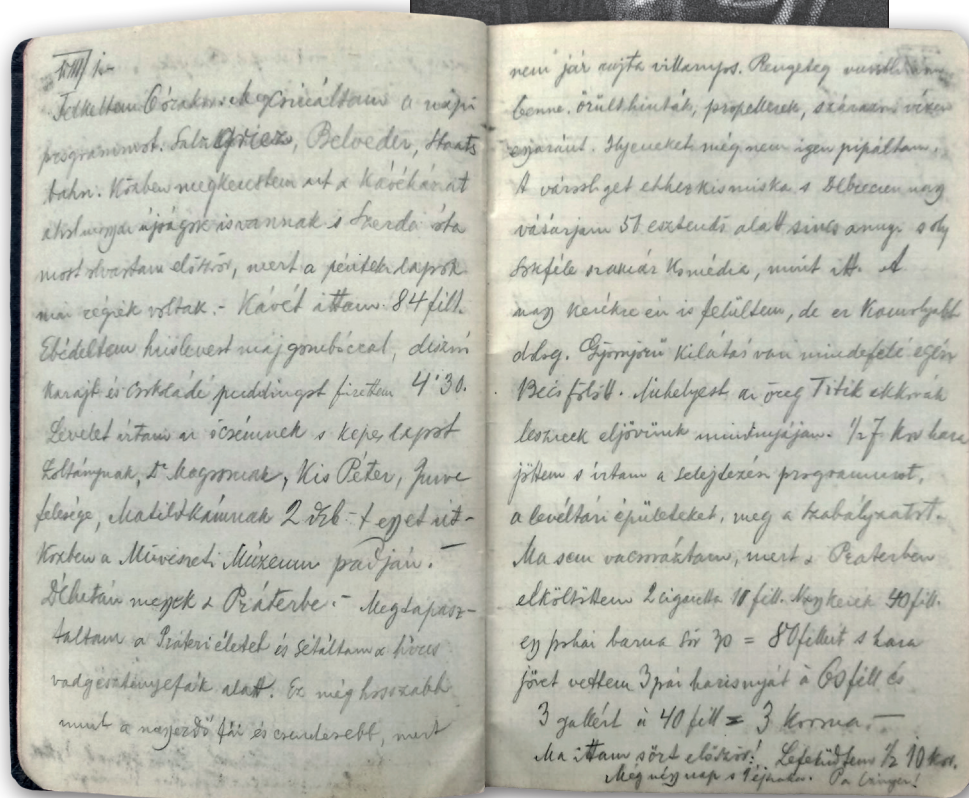 VIII/1-
Felkeltem 6 órakor. Megcsináltam a napi
programmot. Salzgries, Belveder, Staats
bahn. Közben megkerestem azt a Kávéházat
ahol magyar újságok is vannak s Szerda óta
most olvastam először, mert a pénteki lapok
már régiek voltak. - Kávét ittam. 84 fill.
Ebédeltem húslevest májgombóccal, disznó
karajt és csokládé puddingot fizettem 4'30.
Levelet írtam az öcsémnek s képes lapot
Zoltánynak, Dr. Magosnak, Kis Péter,
felesége, Matildkámnak 2 drb - egyet út-
közben a Művészeti Múzeum padján.
Délután megyek a Práterbe. - Megtapasz-
taltam a Práteri életet és sétáltam a
vadgesztenyefák alatt. Ez még hosszabb
mint a nagyerdő fái és csendesebb, mert
nem jár rajta villamos. Rengeteg
benne. örült hinták, propellerek, szárazon vizen
egyaránt. Ilyeneket még nem igen pipáltam.
A városliget ehhez kismiska s Debrecen nagy
vásárjain 51 esztendő alatt sincs annyi s oly
sokféle szamár komédia, mint itt. A
nagy kerékre én is felültem, de ez komolyabb
dolog. Gyönyörű kilátás van mindefelé egész
Bécs fölött. Mihelyest az öreg Titik akkorák
lesznek eljövünk mindnyájan. 1/2 7 kor haza
jöttem s írtam a selejtezési programmot,
a levéltári épületeket, meg a szabályzatot.
Ma sem vacsoráztam, mert a Praterben
elköltöttem 2 cigaretta 10 fill. Nagykerék 40 fill.
egy pohár barna sör 30 = 80 fillért s haza
jövet vettem 3 pár harisnyát à 60 fill és
3 gallért à 40 fill = 3 korona. -
Ma ittam sört először! Lefeküdtem 1/2 10 kor.
Még négy nap s 1 éjszaka.